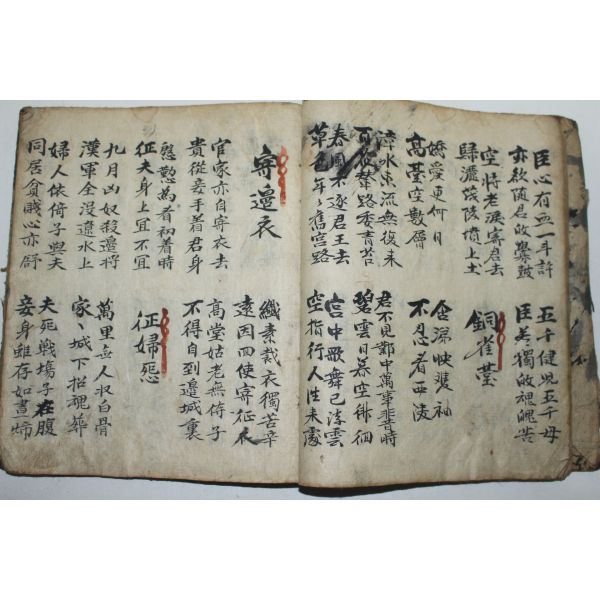 臣心有血一斗許　五千健児五千母
亦欲随君助爨鼓　臣若獨敀魂魄苦
空將老淚寄君去
歸灑茂陵墳上土　銅雀臺
嬌愛更何日　含涕映雙袖
高臺空數層　不忍看西陵
漳水東流無復來　君不見鄴中萬事非昔時
百花輦路委青苔　碧雲日暮空徘徊
春風不逐君王去　宮中歌舞已浮雲
草色年〻舊宮路　空指行人往來處
寄邊衣　纖素裁衣獨苦辛
遠因回使寄征衣
官家亦自寄衣去　高堂姑老無侍子
貴從妾手着君身　不得自到邊城裏
慇懃為看初着時
征夫身上宜不宜　征婦怨
九月凶奴殺邊將　萬里無人収白骨
漢軍全沒遼水上　家〻城下招魂葬
婦人依倚子與夫　夫死戰塲子在腹
同居貧賤心亦舒　妾身雖存如晝燭